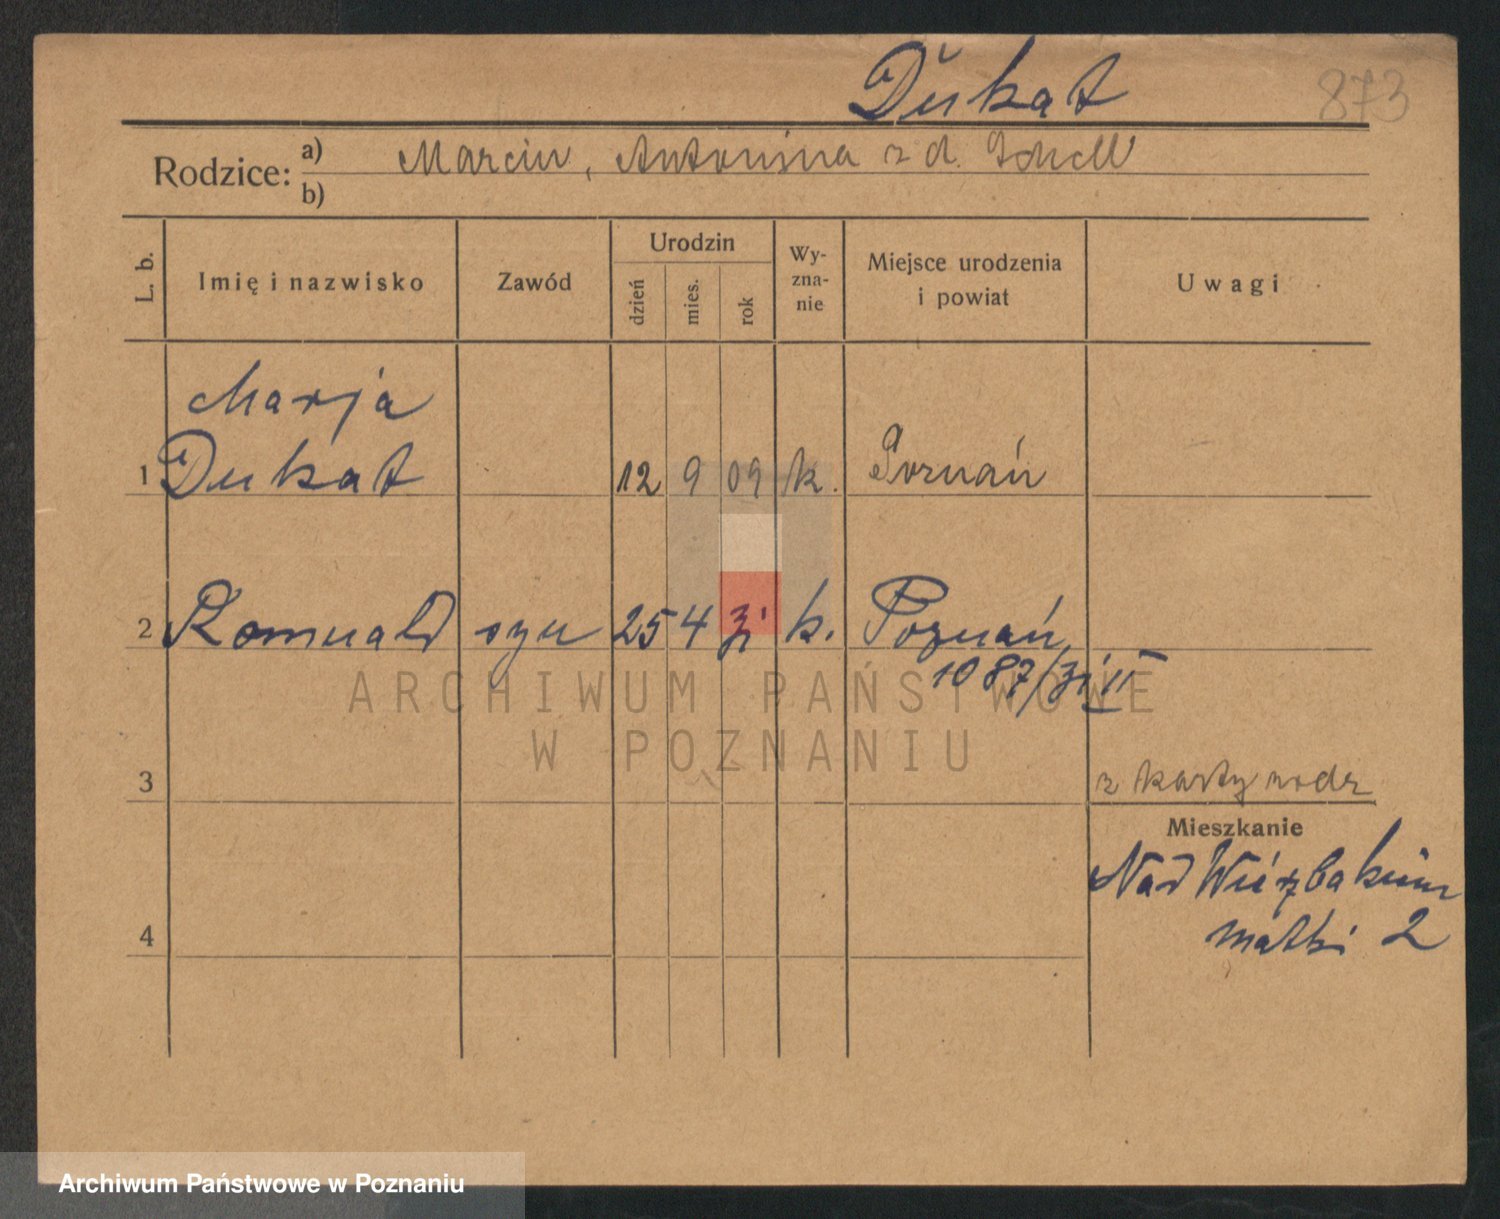 Dukat 873
Rodzice: a) Marcin, Antonina z d. Schell
b)
L. b.
Imię i nazwisko
Zawód
Urodzin
dzień
mies.
rok
Wy-
zna-
nie
Miejsce urodzenia
i powiat
Uwagi
Marja
1 Dukat 12 9 09 k. Poznań
2 Romuald syn 25 4 31 k. Poznań
1087/31 II
3 z karty rodz
Mieszkanie
Nad Wierzbakiem
matki 2
4
ARCHIWUM PAŃSTWOWE
W POZNANIU
Archiwum Państwowe w Poznaniu